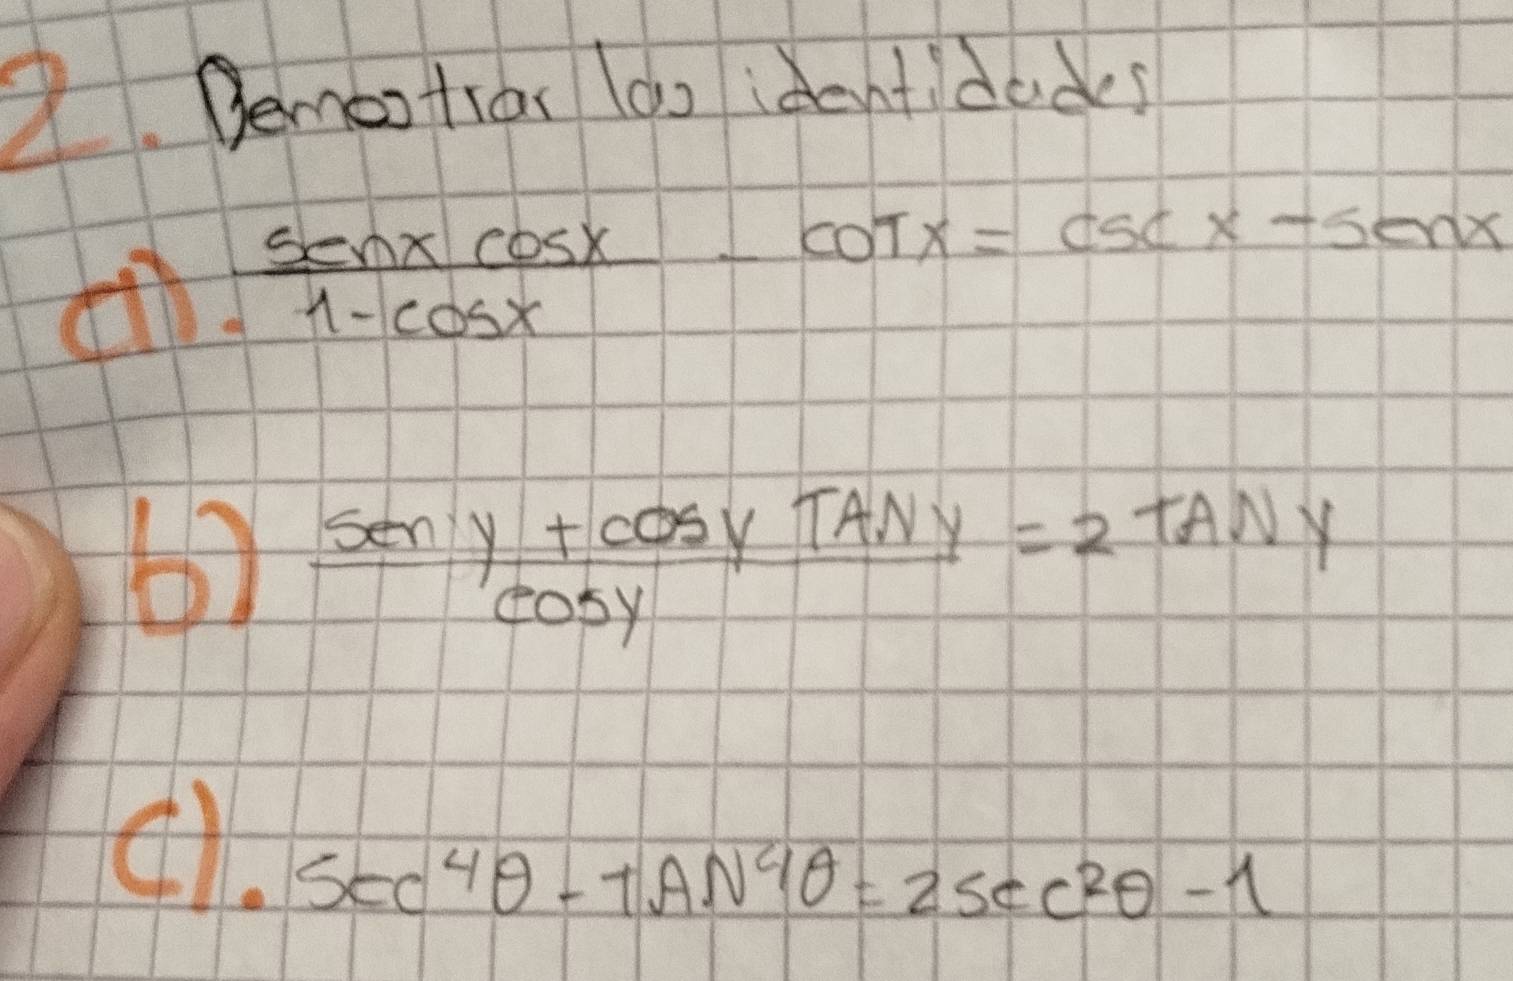 2. Demostrar las identidades
a). senx cosx / 1-cosx - cotx = cscx - senx
b) seny + cosy TANy / cosy = 2 TANy
c). Sec⁴θ - TAN⁴θ = 2sec²θ - 1